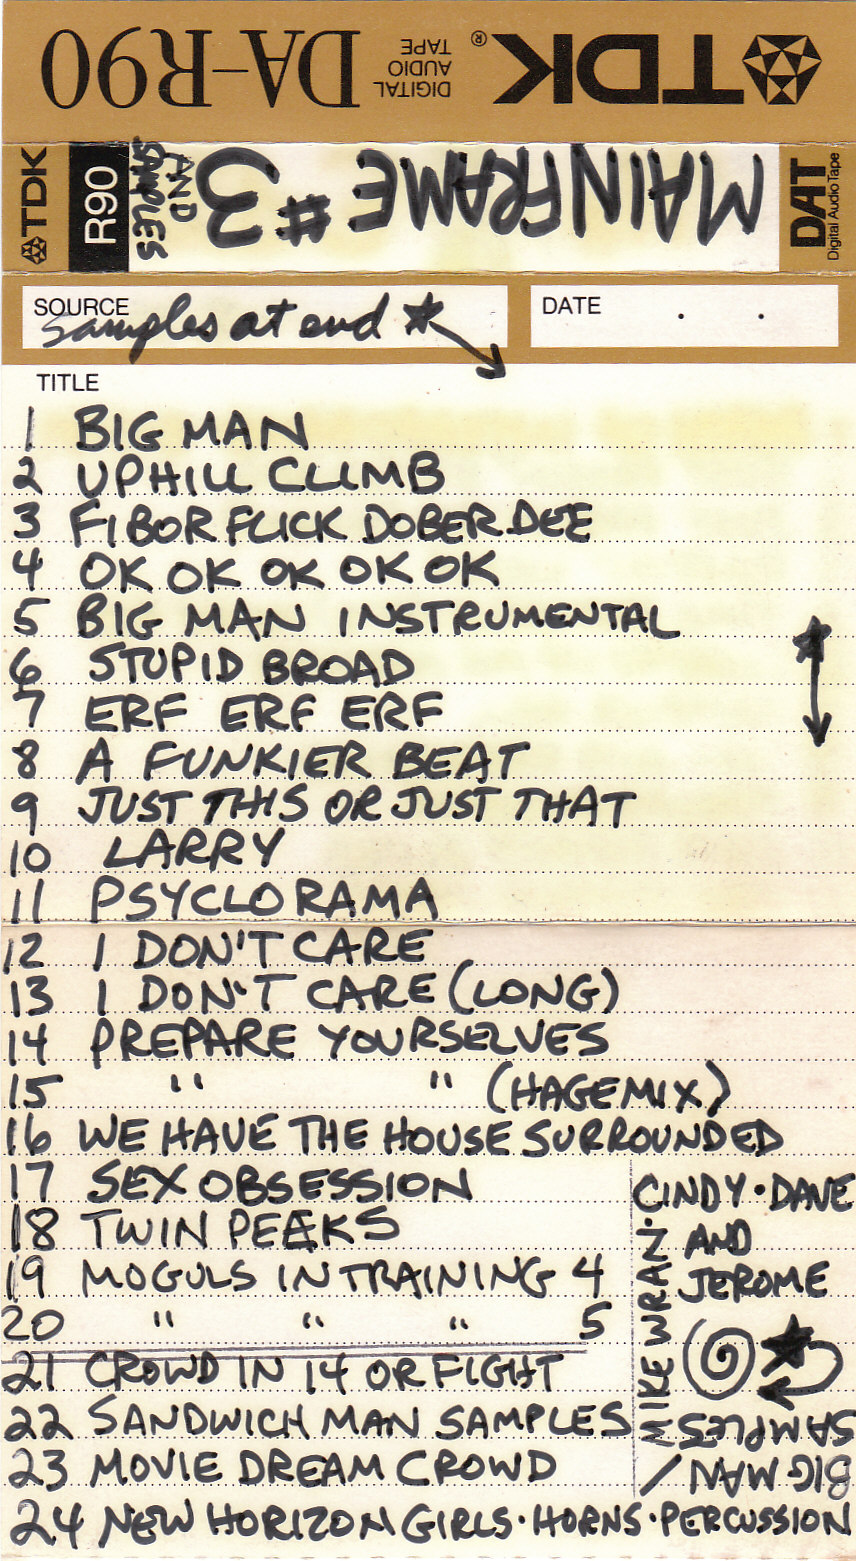 TDK® DIGITAL AUDIO TAPE DA-R90
TDK R90 MAINFRAME #3 AND SAMPLES DAT Digital Audio Tape
SOURCE samples at end
DATE . .
TITLE
1 BIG MAN
2 UPHILL CLIMB
3 FIBOR FLICK DOBER DEE
4 OK OK OK OK OK
5 BIG MAN INSTRUMENTAL
6 STUPID BROAD
7 ERF ERF ERF
8 A FUNKIER BEAT
9 JUST THIS OR JUST THAT
10 LARRY
11 PSYCLORAMA
12 I DON'T CARE
13 I DON'T CARE (LONG)
14 PREPARE YOURSELVES
15 " " (HAGEMIX)
16 WE HAVE THE HOUSE SURROUNDED
17 SEX OBSESSION
18 TWIN PEAKS
19 MOGULS IN TRAINING 4
20 " " " 5
21 CROWD IN 14 OR FIGHT
22 SANDWICH MAN SAMPLES
23 MOVIE DREAM CROWD
24 NEW HORIZON GIRLS · HORNS · PERCUSSION
MIKE WRAN · CINDY · DAVE
AND
JEROME
BIG MAN /
SAMPLES